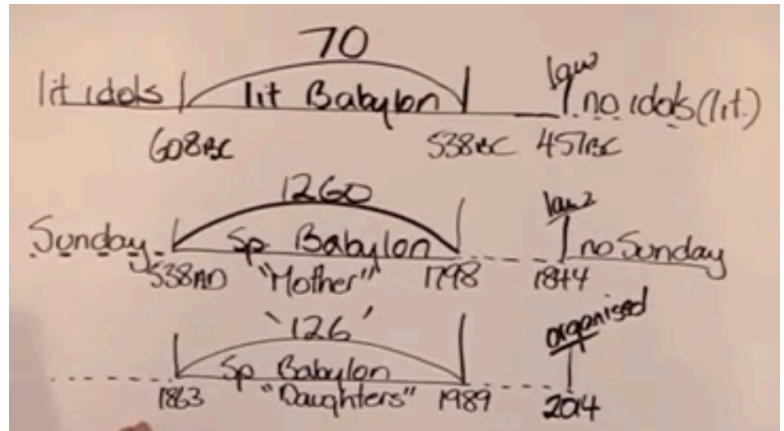 70
lit idols lit Babylon law no idols (lit.)
608BC 538BC 457BC
1260
Sunday Sp Babylon law no Sunday
538AD "Mother" 1798 1844
'126'
Sp Babylon organised
1863 "Daughters" 1989 2014